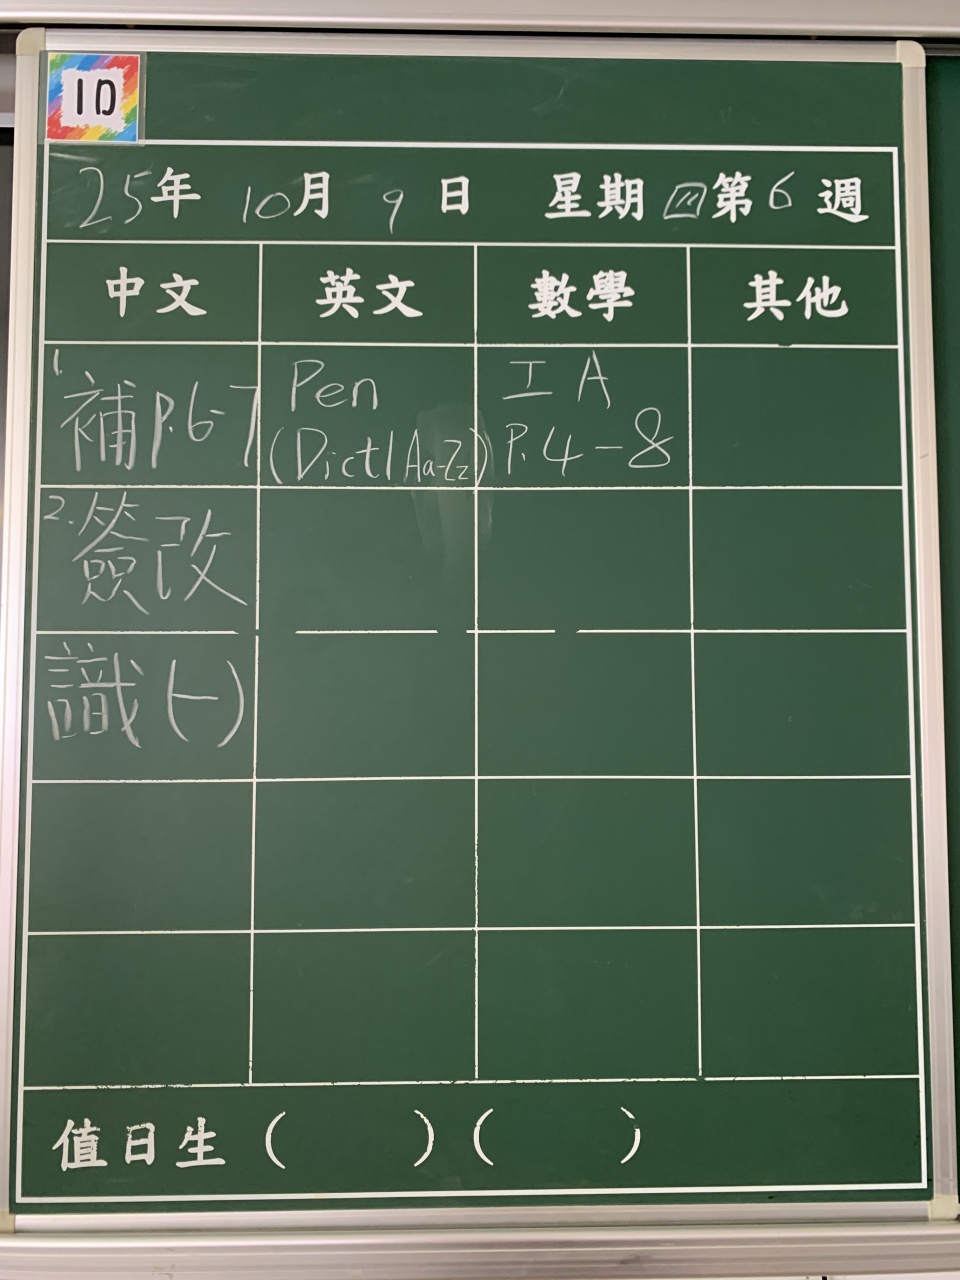 1D
25年 10月 9日 星期四 第6週
中文 英文 數學 其他
1. 補 P.6-7
Pen
(Dict1 Aa-Zz)
工 A
P.4-8
2. 簽改
識(一)
值日生 ( ) ( )